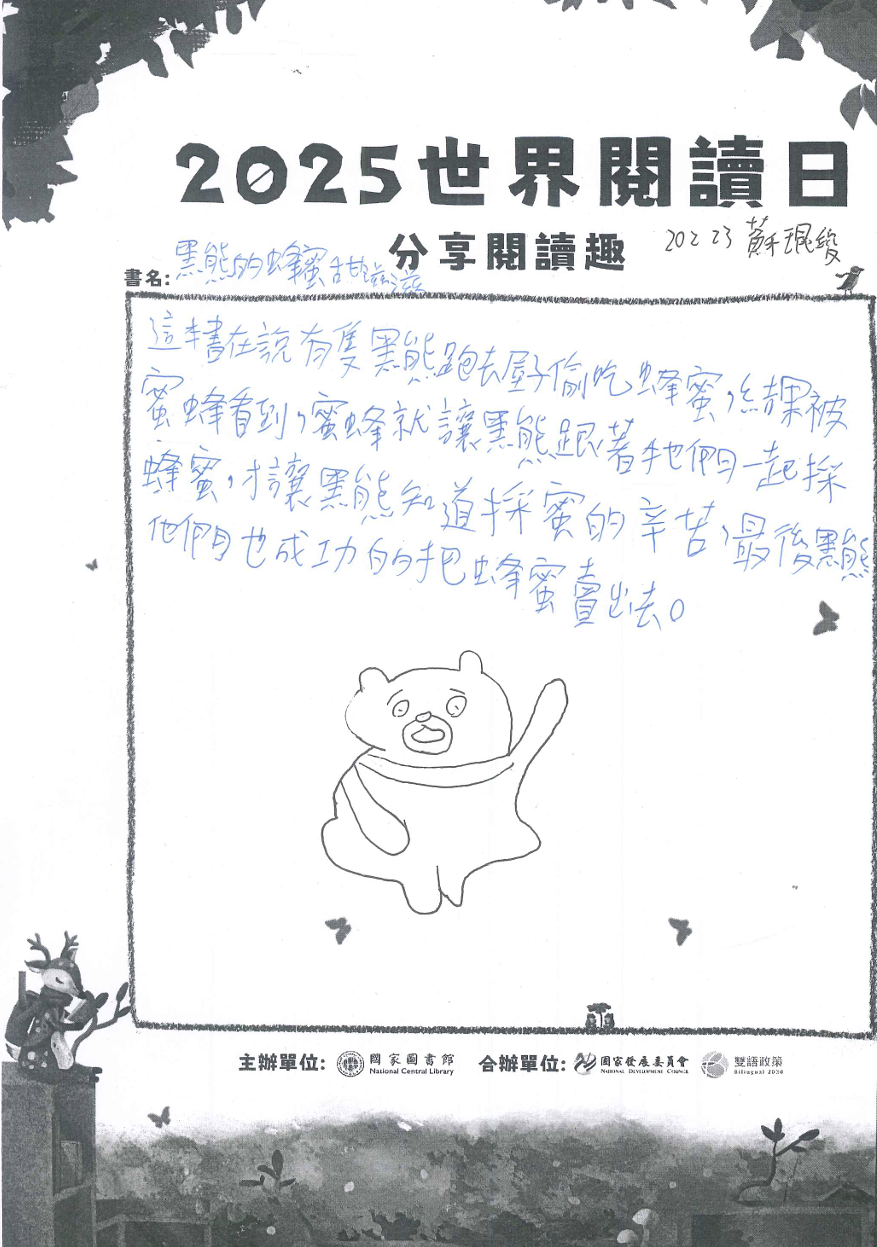 2025世界閱讀日
分享閱讀趣
20223 蘇琨
書名: 黑熊的蜂蜜甜滋滋
這本書在說有隻黑熊跑去屋子偷吃蜂蜜,結果被
蜜蜂看到,蜜蜂就讓黑熊跟著牠們一起採
蜂蜜,才讓黑熊知道採蜜的辛苦,最後黑熊
他們也成功的把蜂蜜賣出去。
主辦單位: 國家圖書館 National Central Library 合辦單位: 國家發展委員會 National Development Council 雙語政策 Bilingual 2030